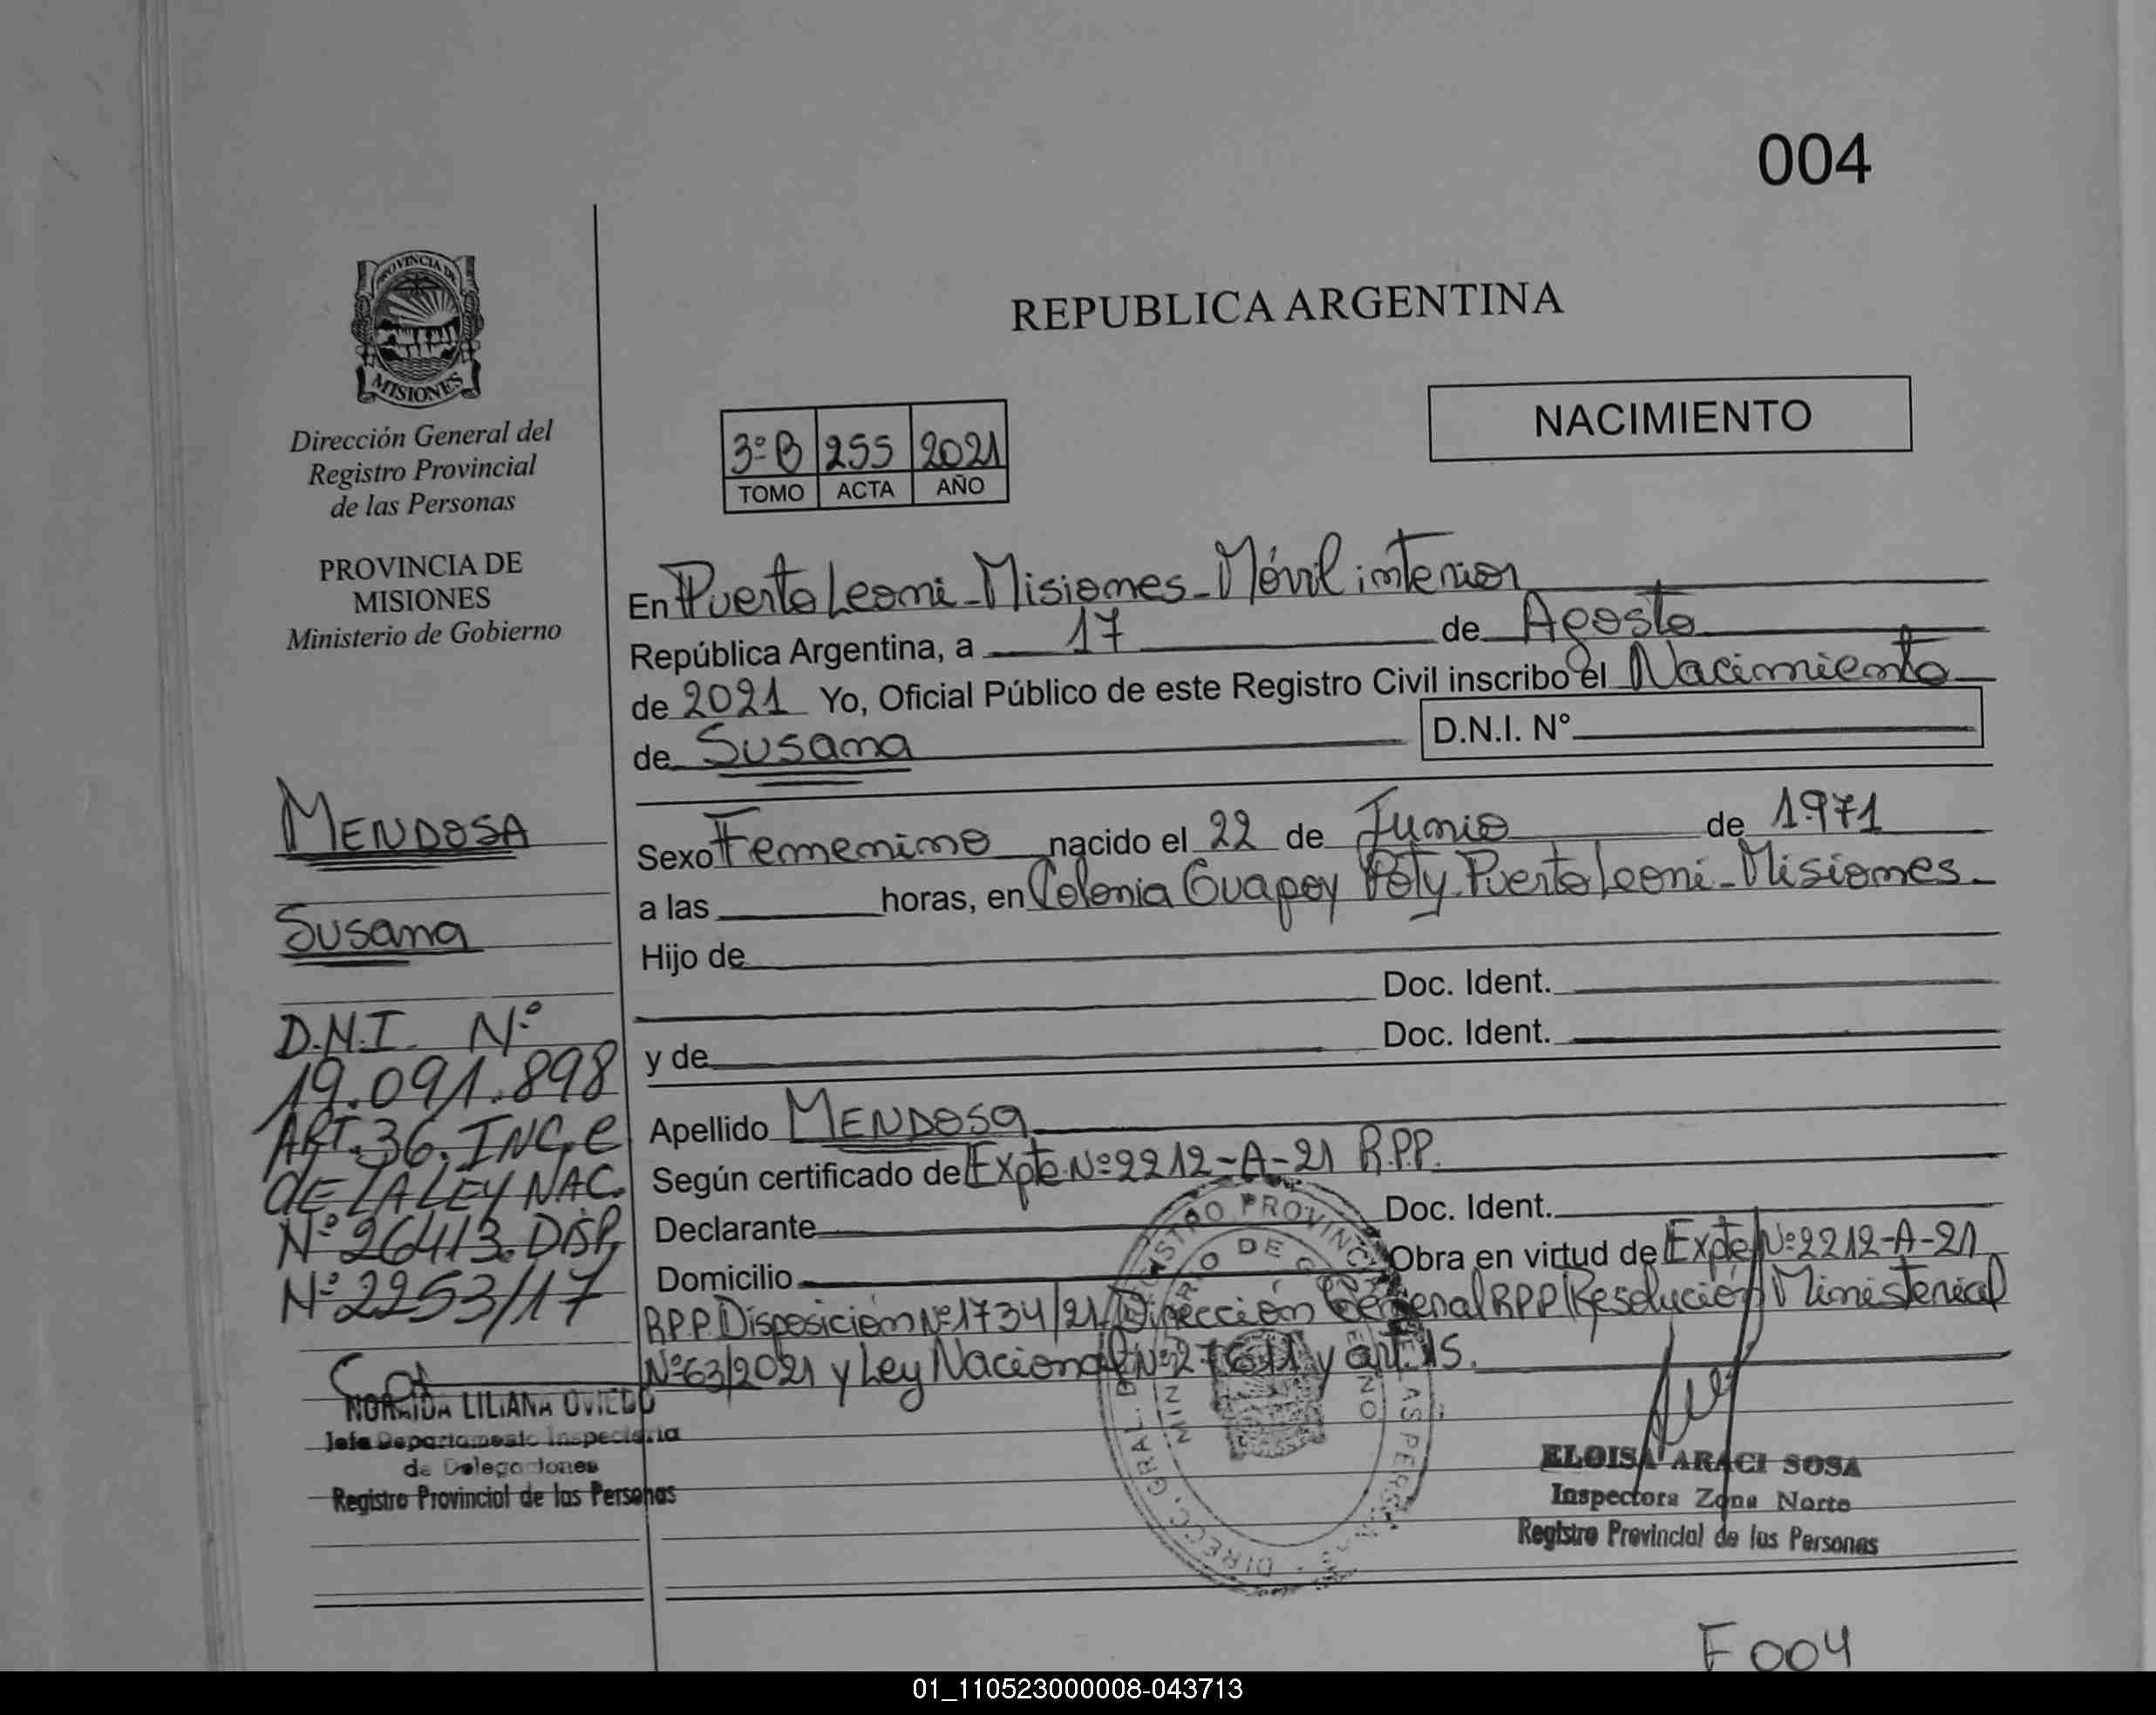 004
PROVINCIA DE
MISIONES
Dirección General del
Registro Provincial
de las Personas
PROVINCIA DE
MISIONES
Ministerio de Gobierno
MENDOSA
Susana
D.N.I. Nº
19.091.898
ART. 36. INC. e
de LA LEY NAC.
Nº 26413. DISP,
Nº 2253/17
NORAIDA LILIANA OVIEDO
Jefa Departamento Inspectoria
de Delegaciones
Registro Provincial de las Personas
REPUBLICA ARGENTINA
NACIMIENTO
3º B 255 2021
TOMO ACTA AÑO
En Puerto Leoni - Misiones - Móvil interior
República Argentina, a 17 de Agosto
de 2021 Yo, Oficial Público de este Registro Civil inscribo el Nacimiento
de Susana D.N.I. N°
Sexo Femenino nacido el 22 de Junio de 1971
a las horas, en Colonia Guapoy Poty - Puerto Leoni - Misiones -
Hijo de
Doc. Ident.
y de Doc. Ident.
Apellido MENDOSA
Según certificado de Expte Nº 2212-A-21 R.P.P.
Declarante Doc. Ident.
Domicilio Obra en virtud de Expte Nº 2212-A-21
R.P.P. Disposición Nº 1734/21 Dirección General RPP Resolución Ministerial
Nº 63/2021 y Ley Nacional Nº 27611 y art. 15.
ELOISA ARACI SOSA
Inspectora Zona Norte
Registro Provincial de las Personas
F 004
01_110523000008-043713